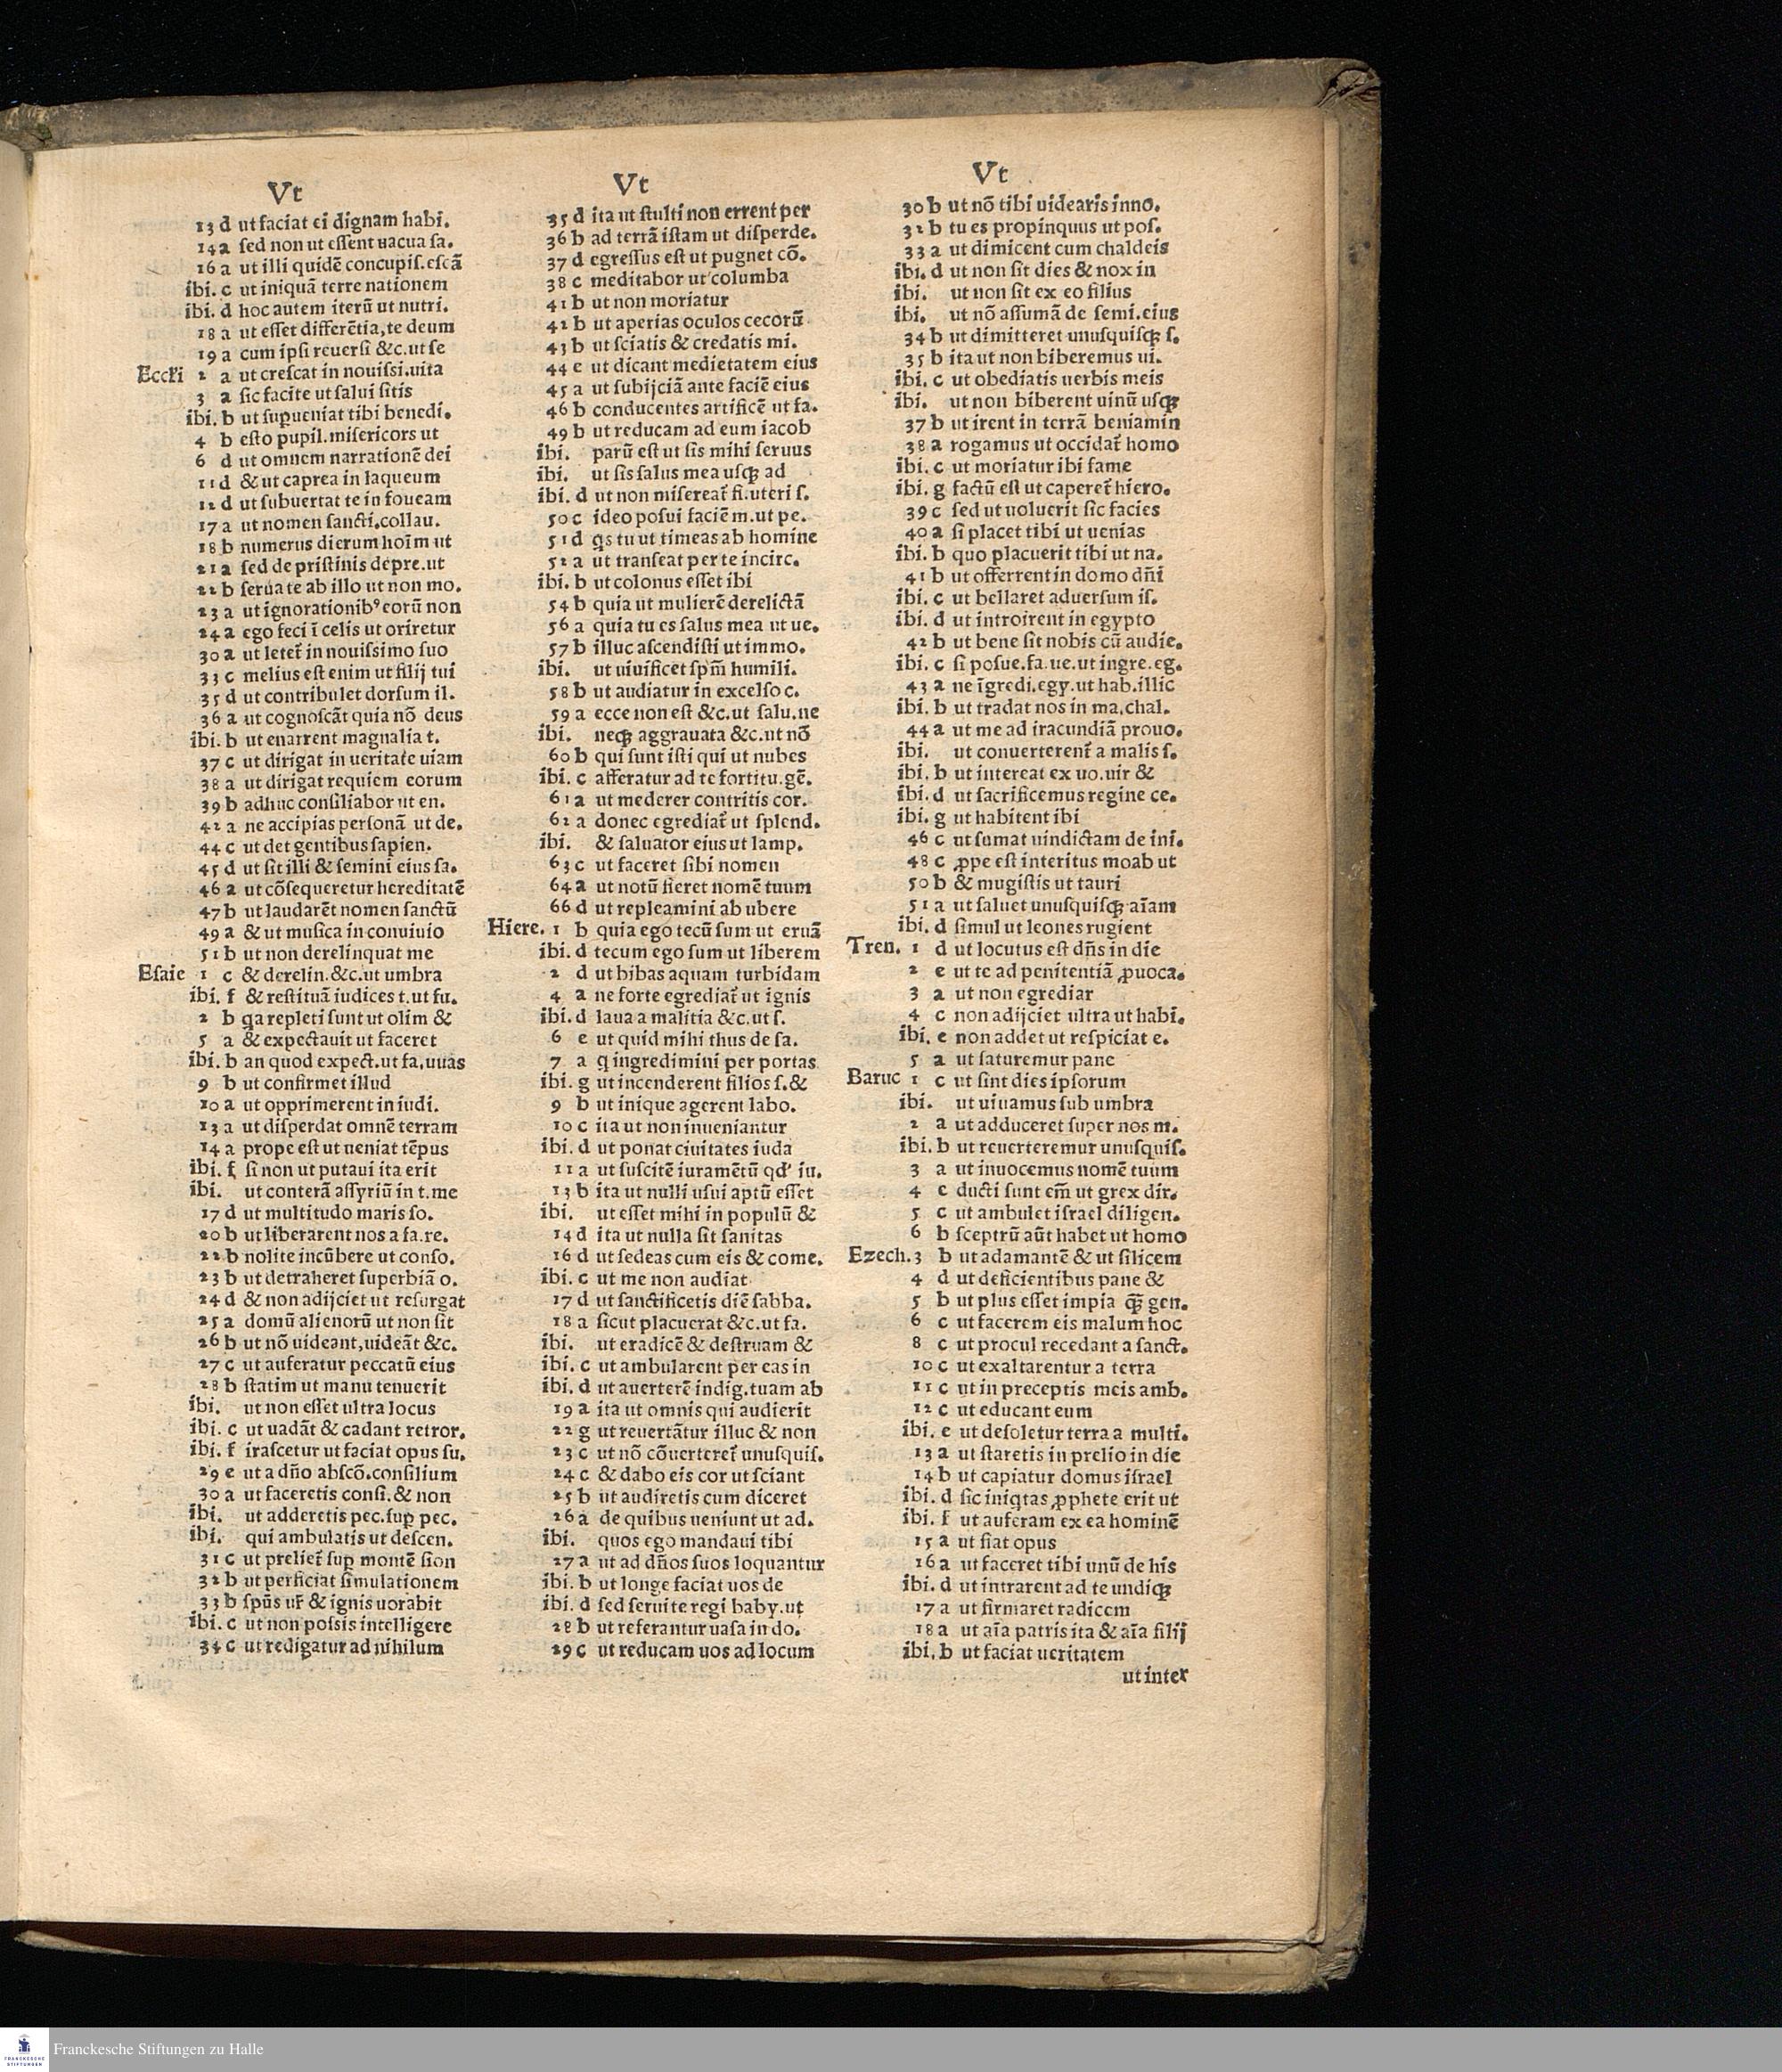 Vt
13 d ut faciat ei dignam habi.
14 a ſed non ut eſſent uacua ſa.
16 a ut illi quidē concupiſ.eſcā
ibi. c ut iniquā terre nationem
ibi. d hoc autem iterū ut nutri.
18 a ut eſſet differētia,te deum
19 a cum ipſi reuerſi &c.ut ſe
Eccłi 2 a ut creſcat in nouiſsi.uita
3 a ſic facite ut ſalui ſitis
ibi. b ut ſuꝑueniat tibi benedi.
4 b eſto pupil.miſericors ut
6 d ut omnem narrationē dei
11 d & ut caprea in laqueum
12 d ut ſubuertat te in foueam
17 a ut nomen ſancti.collau.
18 b numerus dierum hoīm ut
21 a ſed de priſtinis depre.ut
22 b ſerua te ab illo ut non mo.
23 a ut ignorationibꝰ eorū non
24 a ego feci ī celis ut oriretur
30 a ut letet᷑ in nouiſsimo ſuo
33 c melius eſt enim ut filij tui
35 d ut contribulet dorſum il.
36 a ut cognoſcāt quia nō deus
ibi. b ut enarrent magnalia t.
37 c ut dirigat in ueritate uiam
38 a ut dirigat requiem eorum
39 b adhuc conſiliabor ut en.
42 a ne accipias perſonā ut de.
44 c ut det gentibus ſapien.
45 d ut ſit illi & ſemini eius ſa.
46 a ut cōſequeretur hereditatē
47 b ut laudarēt nomen ſanctū
49 a & ut muſica in conuiuio
51 b ut non derelinquat me
Eſaie 1 c & derelin.&c.ut umbra
ibi. f & reſtituā iudices t.ut fu.
2 b qa repleti ſunt ut olim &
5 a & expectauit ut faceret
ibi. b an quod expect.ut fa.uuas
9 b ut confirmet illud
10 a ut opprimerent in iudi.
13 a ut diſperdat omnē terram
14 a prope eſt ut ueniat tēpus
ibi. f ſi non ut putaui ita erit
ibi. ut conterā aſſyriū in t.me
17 d ut multitudo maris ſo.
20 b ut liberarent nos a fa.re.
22 b nolite incūbere ut conſo.
23 b ut detraheret ſuperbiā o.
24 d & non adijciet ut reſurgat
25 a domū alienorū ut non ſit
26 b ut nō uideant,uideāt &c.
27 c ut auferatur peccatū eius
28 b ſtatim ut manu tenuerit
ibi. ut non eſſet ultra locus
ibi. c ut uadāt & cadant retror.
ibi. f iraſcetur ut faciat opus ſu.
29 e ut a dño abſcō.conſilium
30 a ut faceretis conſi.& non
ibi. ut adderetis pec.ſuꝑ pec.
ibi. qui ambulatis ut deſcen.
31 c ut preliet᷑ ſuꝑ montē ſion
32 b ut perficiat ſimulationem
33 b ſpūs ur̄ & ignis uorabit
ibi. c ut non poſsis intelligere
34 c ut redigatur ad nihilum
Vt
35 d ita ut ſtulti non errent per
36 b ad terrā iſtam ut diſperde.
37 d egreſſus eſt ut pugnet cō.
38 c meditabor ut columba
41 b ut non moriatur
42 b ut aperias oculos cecorū
43 b ut ſciatis & credatis mi.
44 e ut dicant medietatem eius
45 a ut ſubijciā ante faciē eius
46 b conducentes artificē ut fa.
49 b ut reducam ad eum iacob
ibi. parū eſt ut ſis mihi ſeruus
ibi. ut ſis ſalus mea uſqꝫ ad
ibi. d ut non miſereat᷑ fi.uteri ſ.
50 c ideo poſui faciē m.ut pe.
51 d qs tu ut timeas ab homine
52 a ut tranſeat per te incirc.
ibi. b ut colonus eſſet ibi
54 b quia ut mulierē derelictā
56 a quia tu es ſalus mea ut ue.
57 b illuc aſcendiſti ut immo.
ibi. ut uiuificet ſpm̄ humili.
58 b ut audiatur in excelſo c.
59 a ecce non eſt &c.ut ſalu.ne
ibi. neqꝫ aggrauata &c.ut nō
60 b qui ſunt iſti qui ut nubes
ibi. c afferatur ad te fortitu.gē.
61 a ut mederer contritis cor.
62 a donec egrediat᷑ ut ſplend.
ibi. & ſaluator eius ut lamp.
63 c ut faceret ſibi nomen
64 a ut notū fieret nomē tuum
66 d ut repleamini ab ubere
Hiere. 1 b quia ego tecū ſum ut eruā
ibi. d tecum ego ſum ut liberem
2 d ut bibas aquam turbidam
4 a ne forte egrediat᷑ ut ignis
ibi. d laua a malitia &c.ut ſ.
6 e ut quid mihi thus de ſa.
7 a q ingredimini per portas
ibi. g ut incenderent filios ſ.&
9 b ut inique agerent labo.
10 c ita ut non inueniantur
ibi. d ut ponat ciuitates iuda
11 a ut ſuſcitē iuramētū qd' iu.
13 b ita ut nulli uſui aptū eſſet
ibi. ut eſſet mihi in populū &
14 d ita ut nulla ſit ſanitas
16 d ut ſedeas cum eis & come.
ibi. c ut me non audiat
17 d ut ſanctificetis diē ſabba.
18 a ſicut placuerat &c.ut fa.
ibi. ut eradicē & deſtruam &
ibi. c ut ambularent per eas in
ibi. d ut auerterē indig.tuam ab
19 a ita ut omnis qui audierit
22 g ut reuertātur illuc & non
23 c ut nō cōuerteret᷑ unuſquiſ.
24 c & dabo eis cor ut ſciant
25 b ut audiretis cum diceret
26 a de quibus ueniunt ut ad.
ibi. quos ego mandaui tibi
27 a ut ad dños ſuos loquantur
ibi. b ut longe faciat uos de
ibi. d ſed ſeruite regi baby.ut
28 b ut referantur uaſa in do.
29 c ut reducam uos ad locum
Vt
30 b ut nō tibi uidearis inno.
32 b tu es propinquus ut poſ.
33 a ut dimicent cum chaldeis
ibi. d ut non ſit dies & nox in
ibi. ut non ſit ex eo filius
ibi. ut nō aſſumā de ſemi.eius
34 b ut dimitteret unuſquiſqꝫ ſ.
35 b ita ut non biberemus ui.
ibi. c ut obediatis uerbis meis
ibi. ut non biberent uinū uſqꝫ
37 b ut irent in terrā beniamin
38 a rogamus ut occidat᷑ homo
ibi. c ut moriatur ibi fame
ibi. g factū eſt ut caperet᷑ hiero.
39 c ſed ut uoluerit ſic facies
40 a ſi placet tibi ut uenias
ibi. b quo placuerit tibi ut ua.
41 b ut offerrent in domo dñi
ibi. c ut bellaret aduerſum iſ.
ibi. d ut introirent in egypto
42 b ut bene ſit nobis cū audie.
ibi. c ſi poſue.fa.ue.ut ingre.eg.
43 a ne īgredi.egy.ut hab.illic
ibi. b ut tradat nos in ma.chal.
44 a ut me ad iracundiā prouo.
ibi. ut conuerterent᷑ a malis ſ.
ibi. b ut intereat ex uo.uir &
ibi. d ut ſacrificemus regine ce.
ibi. g ut habitent ibi
46 c ut ſumat uindictam de ini.
48 c ꝓpe eſt interitus moab ut
50 b & mugiſtis ut tauri
51 a ut ſaluet unuſquiſqꝫ aīam
ibi. d ſimul ut leones rugient
Tren. 1 d ut locutus eſt dñs in die
2 e ut te ad penitentiā ꝓuoca.
3 a ut non egrediar
4 c non adijciet ultra ut habi.
ibi. e non addet ut reſpiciat e.
5 a ut ſaturemur pane
Baruc 1 c ut ſint dies ipſorum
ibi. ut uiuamus ſub umbra
2 a ut adduceret ſuper nos m.
ibi. b ut reuerteremur unuſquiſ.
3 a ut inuocemus nomē tuum
4 c ducti ſunt em̄ ut grex dir.
5 c ut ambulet iſrael diligen.
6 b ſceptrū aūt habet ut homo
Ezech. 3 b ut adamantē & ut ſilicem
4 d ut deficientibus pane &
5 b ut plus eſſet impia q̄ꝫ gen.
6 c ut facerem eis malum hoc
8 c ut procul recedant a ſanct.
10 c ut exaltarentur a terra
11 c ut in preceptis meis amb.
12 c ut educant eum
ibi. e ut deſoletur terra a multi.
13 a ut ſtaretis in prelio in die
14 b ut capiatur domus iſrael
ibi. d ſic iniqtas ꝓphete erit ut
ibi. f ut auferam ex ea hominē
15 a ut fiat opus
16 a ut faceret tibi unū de his
ibi. d ut intrarent ad te undiqꝫ
17 a ut firmaret radicem
18 a ut aīa patris ita & aīa filij
ibi. b ut faciat ueritatem
ut inter
FRANCKESCHE STIFTUNGEN
Franckesche Stiftungen zu Halle